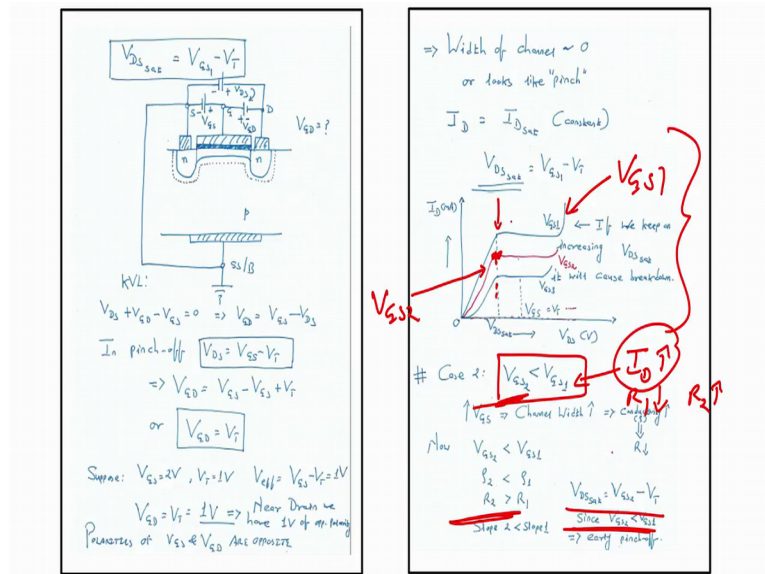 V_DS_sat = V_GS1 - V_T
- + V_DS2
S - + G - + D
V_GS V_GD
V_GD = ?
n n
P
SS/B
KVL:
V_DS + V_GD - V_GS = 0 => V_GD = V_GS - V_DS
In pinch-off V_DS = V_GS - V_T
=> V_GD = V_GS - V_GS + V_T
or V_GD = V_T
Suppose: V_GS = 2V, V_T = 1V V_eff = V_GS - V_T = 1V
V_GD = V_T = 1V => Near Drain we
have 1V of opp. polarity
POLARITIES OF V_GS & V_GD ARE OPPOSITE
=> Width of channel ~ 0
or looks like "pinch"
I_D = I_D_sat (constant)
V_DS_sat = V_GS1 - V_T
V_GS↑
I_D (mA)
V_GS1 ← If we keep on
increasing V_DS_sat
V_GS2
it will cause breakdown.
V_GS3
V_GS2
V_GS = V_T
0 V_DS_sat → V_DS (V)
# Case 2: V_GS2 < V_GS1 I_D↑
R_1↓ R_2↑
↑V_GS => Channel Width↑ => Conductivity↑
R↓
Now V_GS2 < V_GS1
ρ_2 < ρ_1
R_2 > R_1
Slope 2 < Slope 1
V_DS_sat = V_GS2 - V_T
Since V_GS2 < V_GS1
=> early pinch-off.